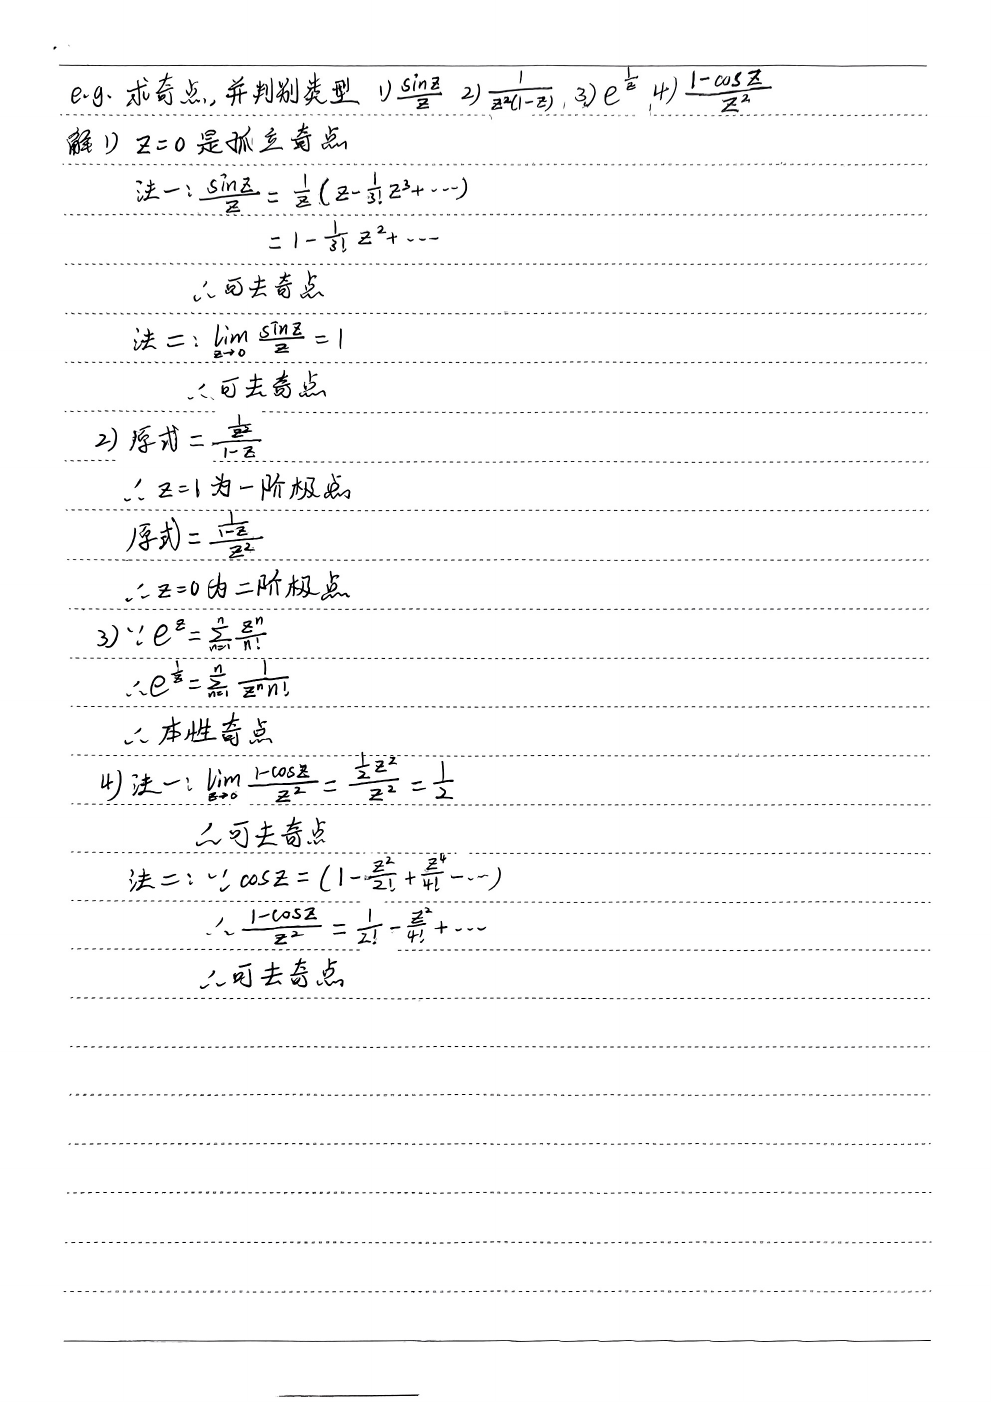 e.g. 求奇点,并判别类型 1) sinz/z 2) 1/(z²(1-z)), 3) e^(1/z), 4) (1-cosz)/z²
解 1) z=0 是孤立奇点
法一: sinz/z = 1/z (z - 1/3! z³ + ···)
= 1 - 1/3! z² + ···
∴ 可去奇点
法二: lim z→0 sinz/z = 1
∴ 可去奇点
2) 原式 = (1/z²)/(1-z)
∴ z=1 为一阶极点
原式 = (1/(1-z))/z²
∴ z=0 为二阶极点
3) ∵ e^z = Σ_{n=1}^{n} z^n/n!
∴ e^(1/z) = Σ_{n=1}^{n} 1/(z^n n!)
∴ 本性奇点
4) 法一: lim z→0 (1-cosz)/z² = (1/2 z²)/z² = 1/2
∴ 可去奇点
法二: ∵ cosz = (1 - z²/2! + z⁴/4! - ···)
∴ (1-cosz)/z² = 1/2! - z²/4! + ···
∴ 可去奇点